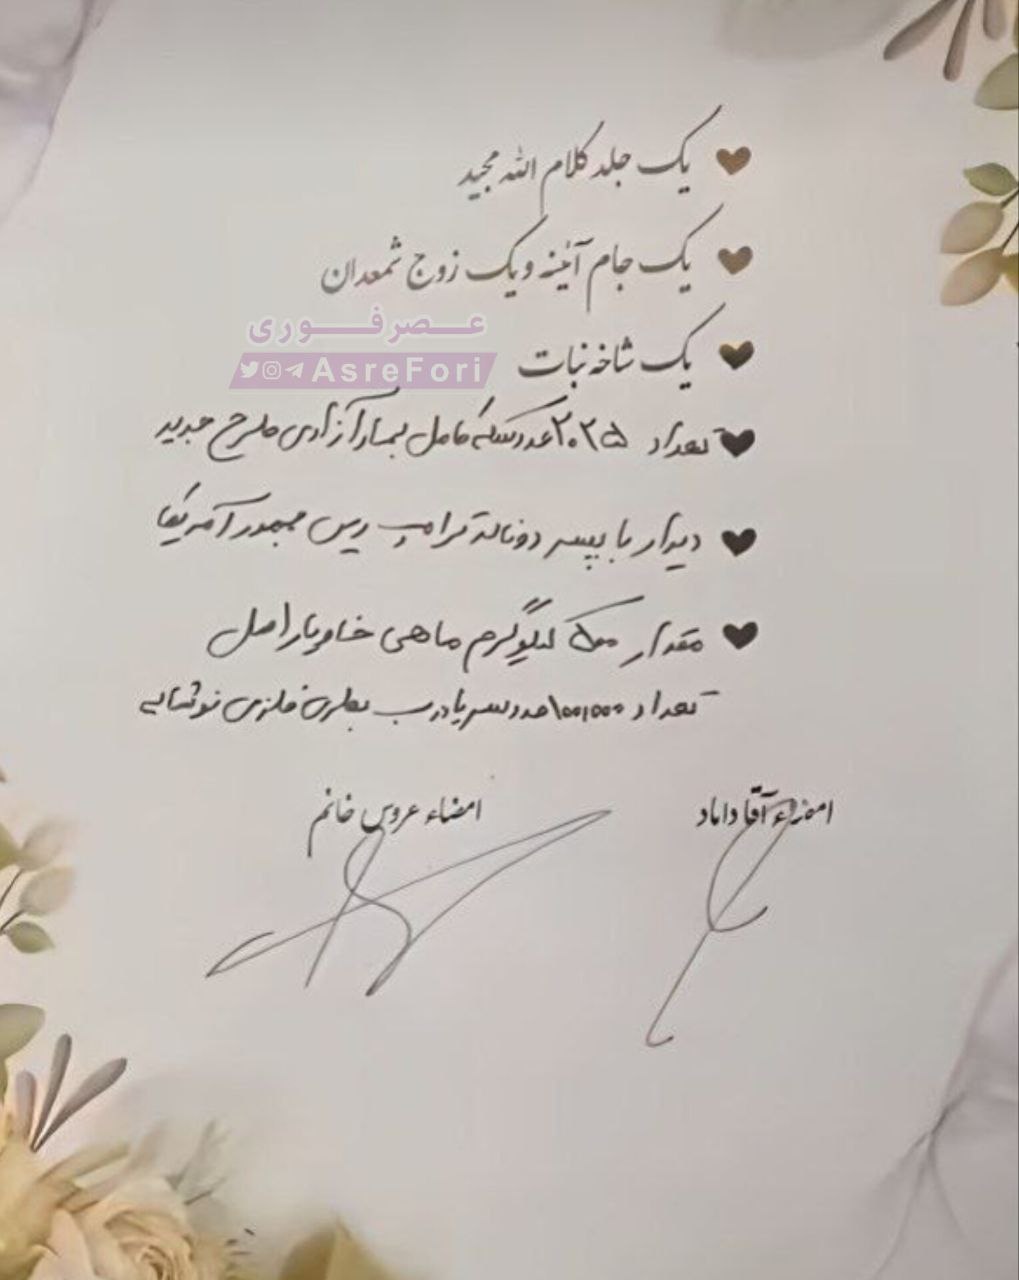 یک جلد کلام الله مجید
یک جام آئینه و یک زوج شمعدان
عصرفوری
AsreFori
یک شاخه نبات
تعداد ۲۰۲۵ عدد سکه کامل بهار آزادی طرح جدید
دیدار با پسر دونالد ترامپ رییس جمهور آمریکا
مقدار ۵۰۰ کیلوگرم ماهی خاویار اصل
تعداد ۱۰۰,۰۰۰ عدد سر یا درب بطری فلزی نوشابه
امضاء آقا داماد
امضاء عروس خانم